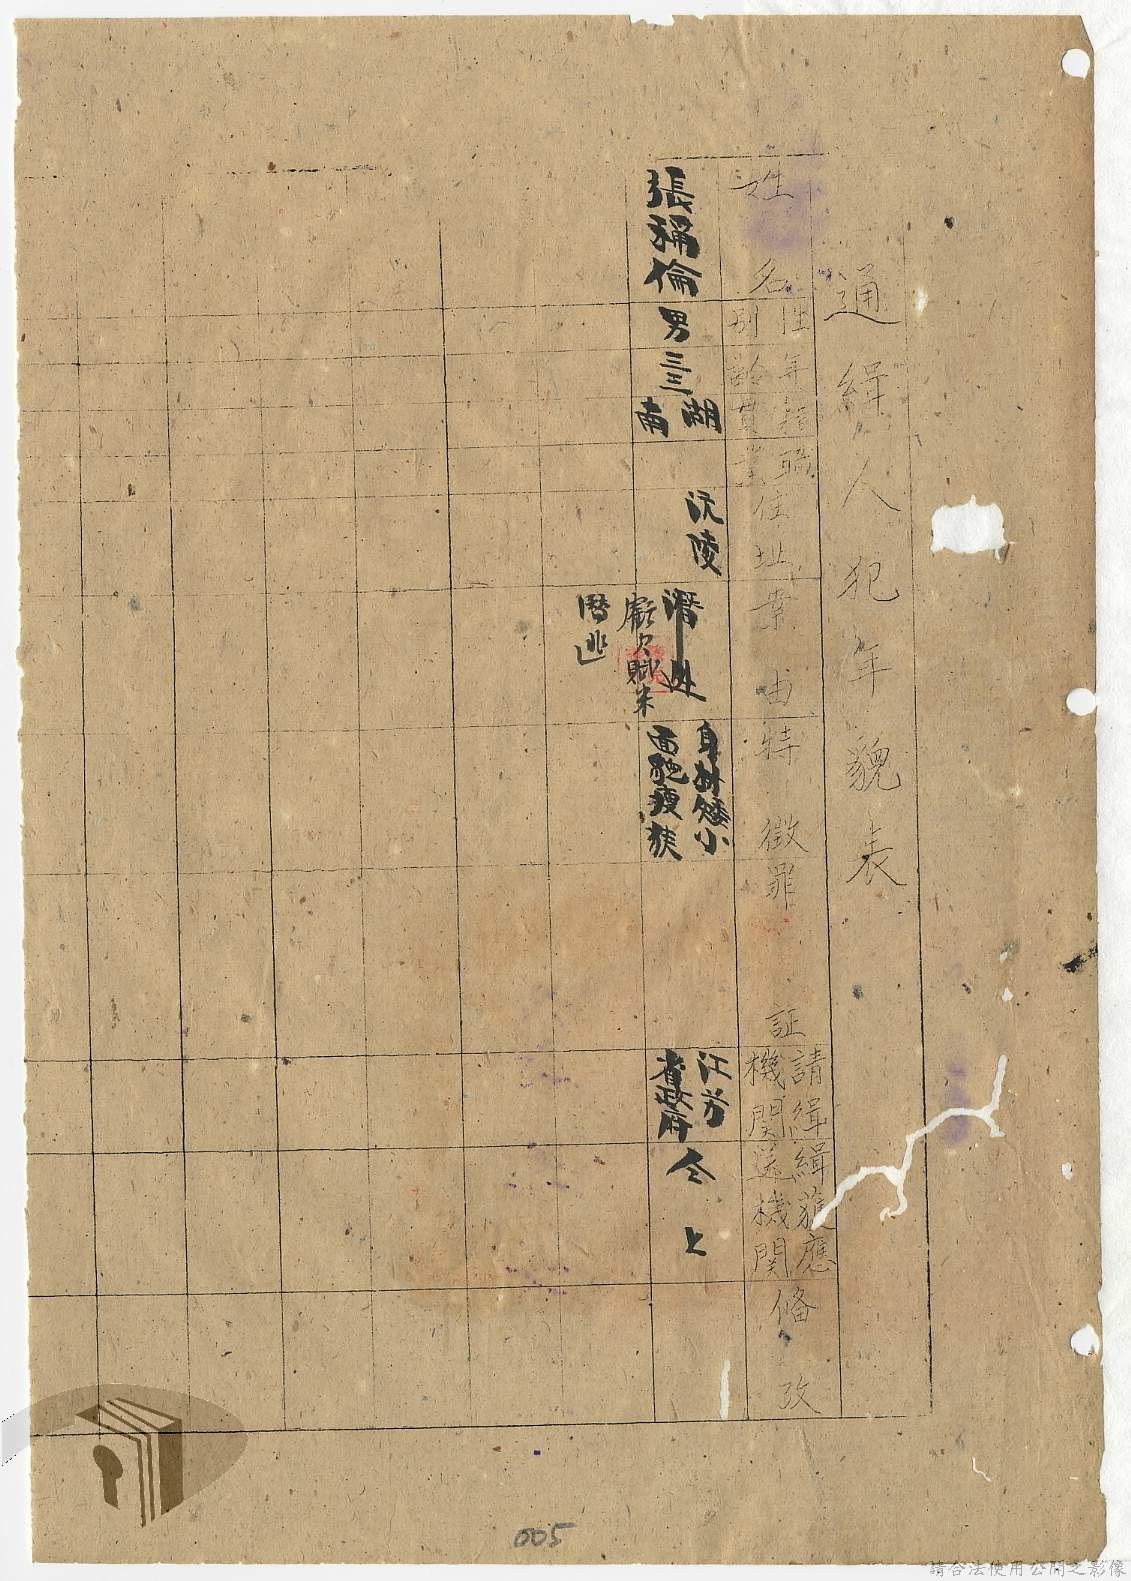 通緝人犯年貌表
姓名
性別
年齡
籍貫
職業
住址
案由
特徵
罪証
請緝機關
緝獲應送機關
備攷
張稱倫
男
三三
湖南
沅陵
虧欠賦米
潛逃
身材矮小
面貌瘦狹
江苏省政府
仝上
005
請合法使用公開之影像